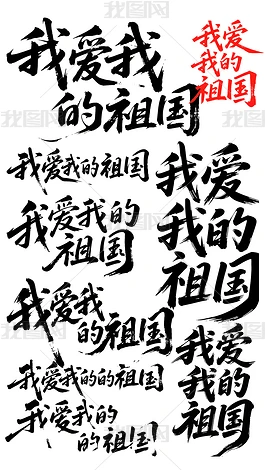 我爱我
的祖国
我爱
我的
祖国
我爱我的祖国
我爱我的
祖国
我爱
我的
祖国
我爱我
的祖国
我爱
我的
祖国
我爱我的的祖国
我爱我的
的祖国